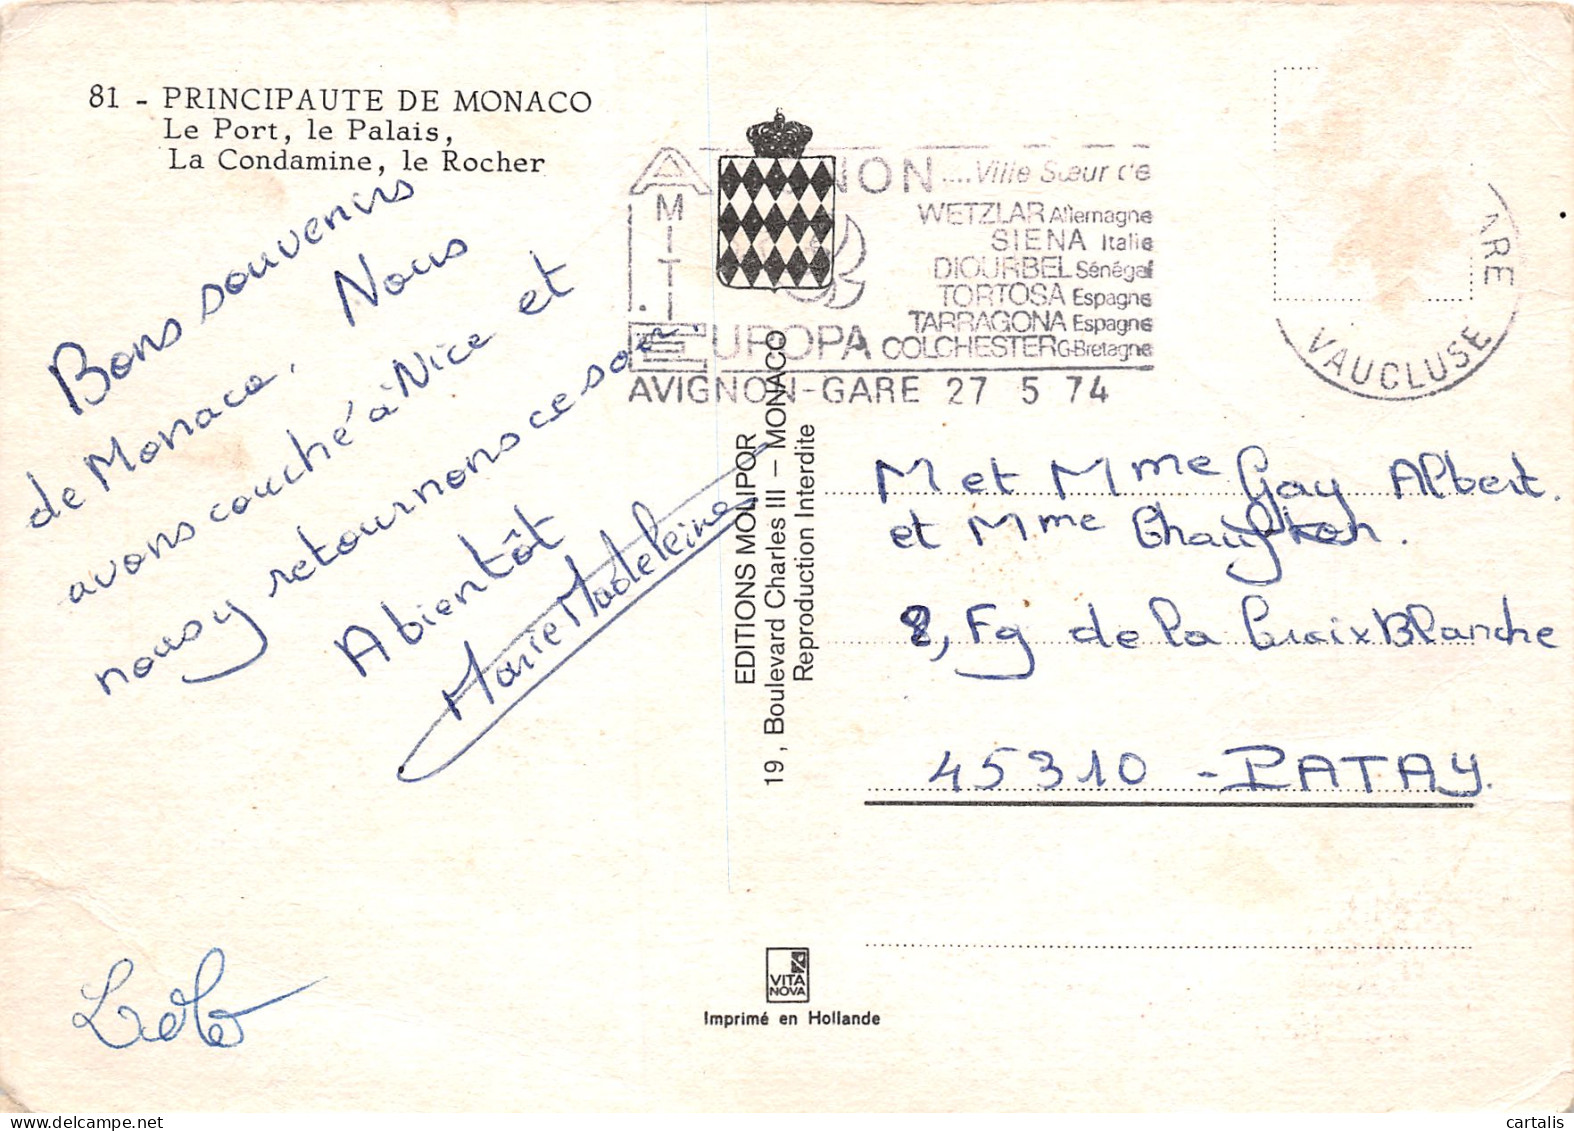 81 - PRINCIPAUTE DE MONACO
Le Port, le Palais,
La Condamine, le Rocher
Bons souvenirs
de Monaco. Nous
avons couché à Nice et
nous y retournons ce soir.
A bientôt
Marie Madeleine
EDITIONS MOLIPOR
19, Boulevard Charles III – MONACO
Reproduction Interdite
VITA
NOVA
Imprimé en Hollande
....Ville Sœur de
AMITIE
WETZLAR Allemagne
SIENA Italie
DIOURBEL Sénégal
TORTOSA Espagne
TARRAGONA Espagne
EUROPA COLCHESTER G-Bretagne
AVIGNON-GARE 27 5 74
VAUCLUSE
M et Mme Gay Albert.
et Mme
8, Fg de la Croix Blanche
45310 - PATAY.
cartalis